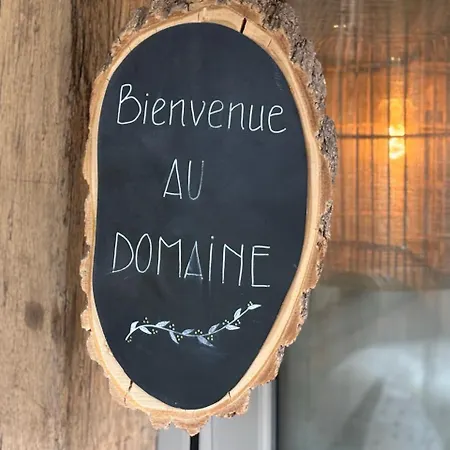 Bienvenue
AU
DOMAiNE